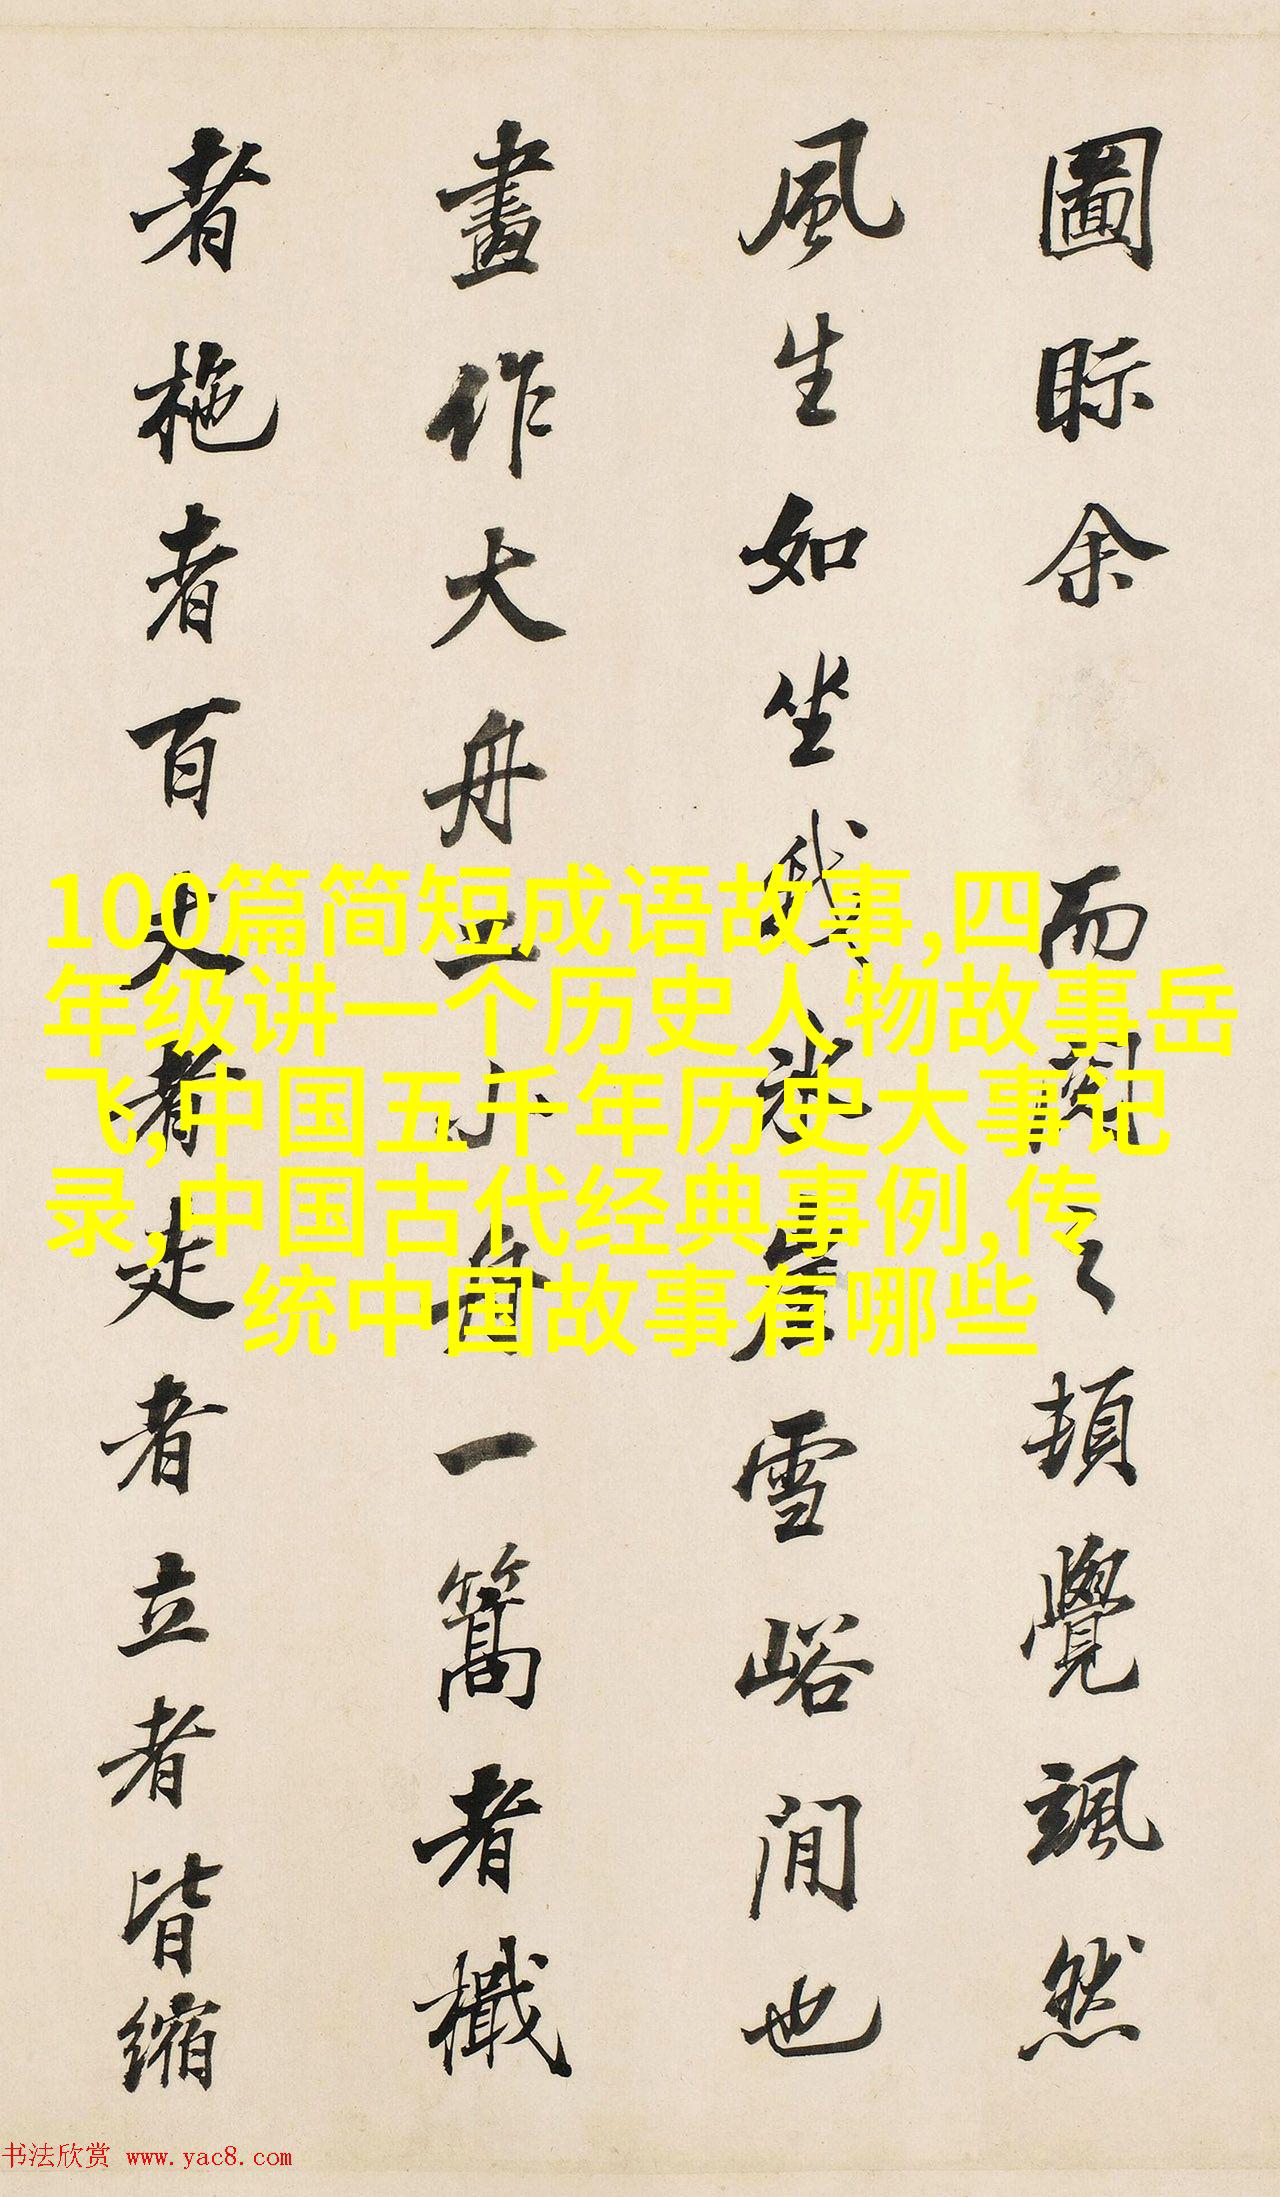 圖眎余 而閱之頓覺颯然
風生如坐冰崖雪峪間也
畫作大舟二小舟一篙者檝
者柂者百丈者走者立者皆縮
100篇简短成语故事,四
年级讲一个历史人物故事岳
飞,中国五千年历史大事记
录,中国古代经典事例,传
统中国故事有哪些
书法欣赏 www.yac8.com